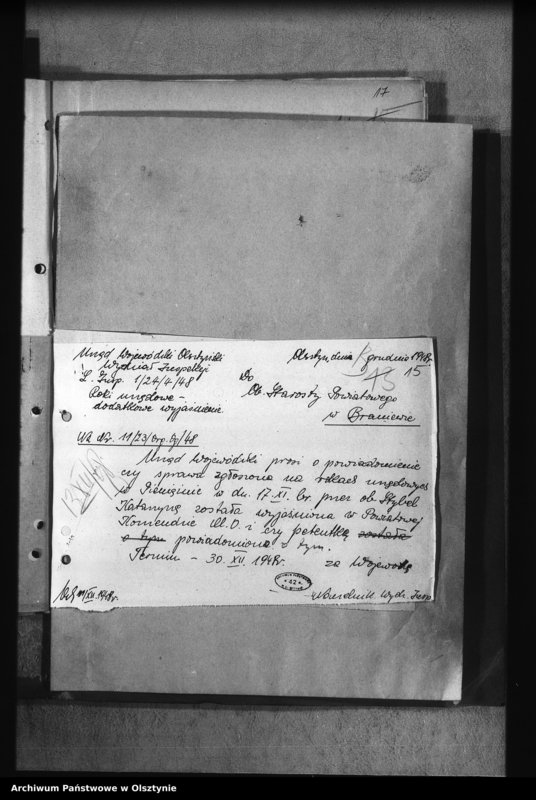 17
Urząd Wojewódzki Olsztyński
Wydział Inspekcji
L. Insp. 1/24/4/48
Roki urzędowe –
dodatkowe wyjaśnienie.
Olsztyn dnia grudnia 1948r.
15
15
Do
Ob. Starosty Powiatowego
w Braniewie
Urząd Wojewódzki prosi o powiadomienie
czy sprawa zgłoszona na rokach urzędowych
w Pieniężnie w dn. 17.XI. br. przez ob. Stybel
Katarzynę została wyjaśniona w Powiatowej
Komendzie M.O. i czy petentkę została
o tym powiadomiono o tym.
Termin – 30. XII. 1948r.
za Wojewodę
42
XII.1948r.
Wydz. Insp.
Archiwum Państwowe w Olsztynie